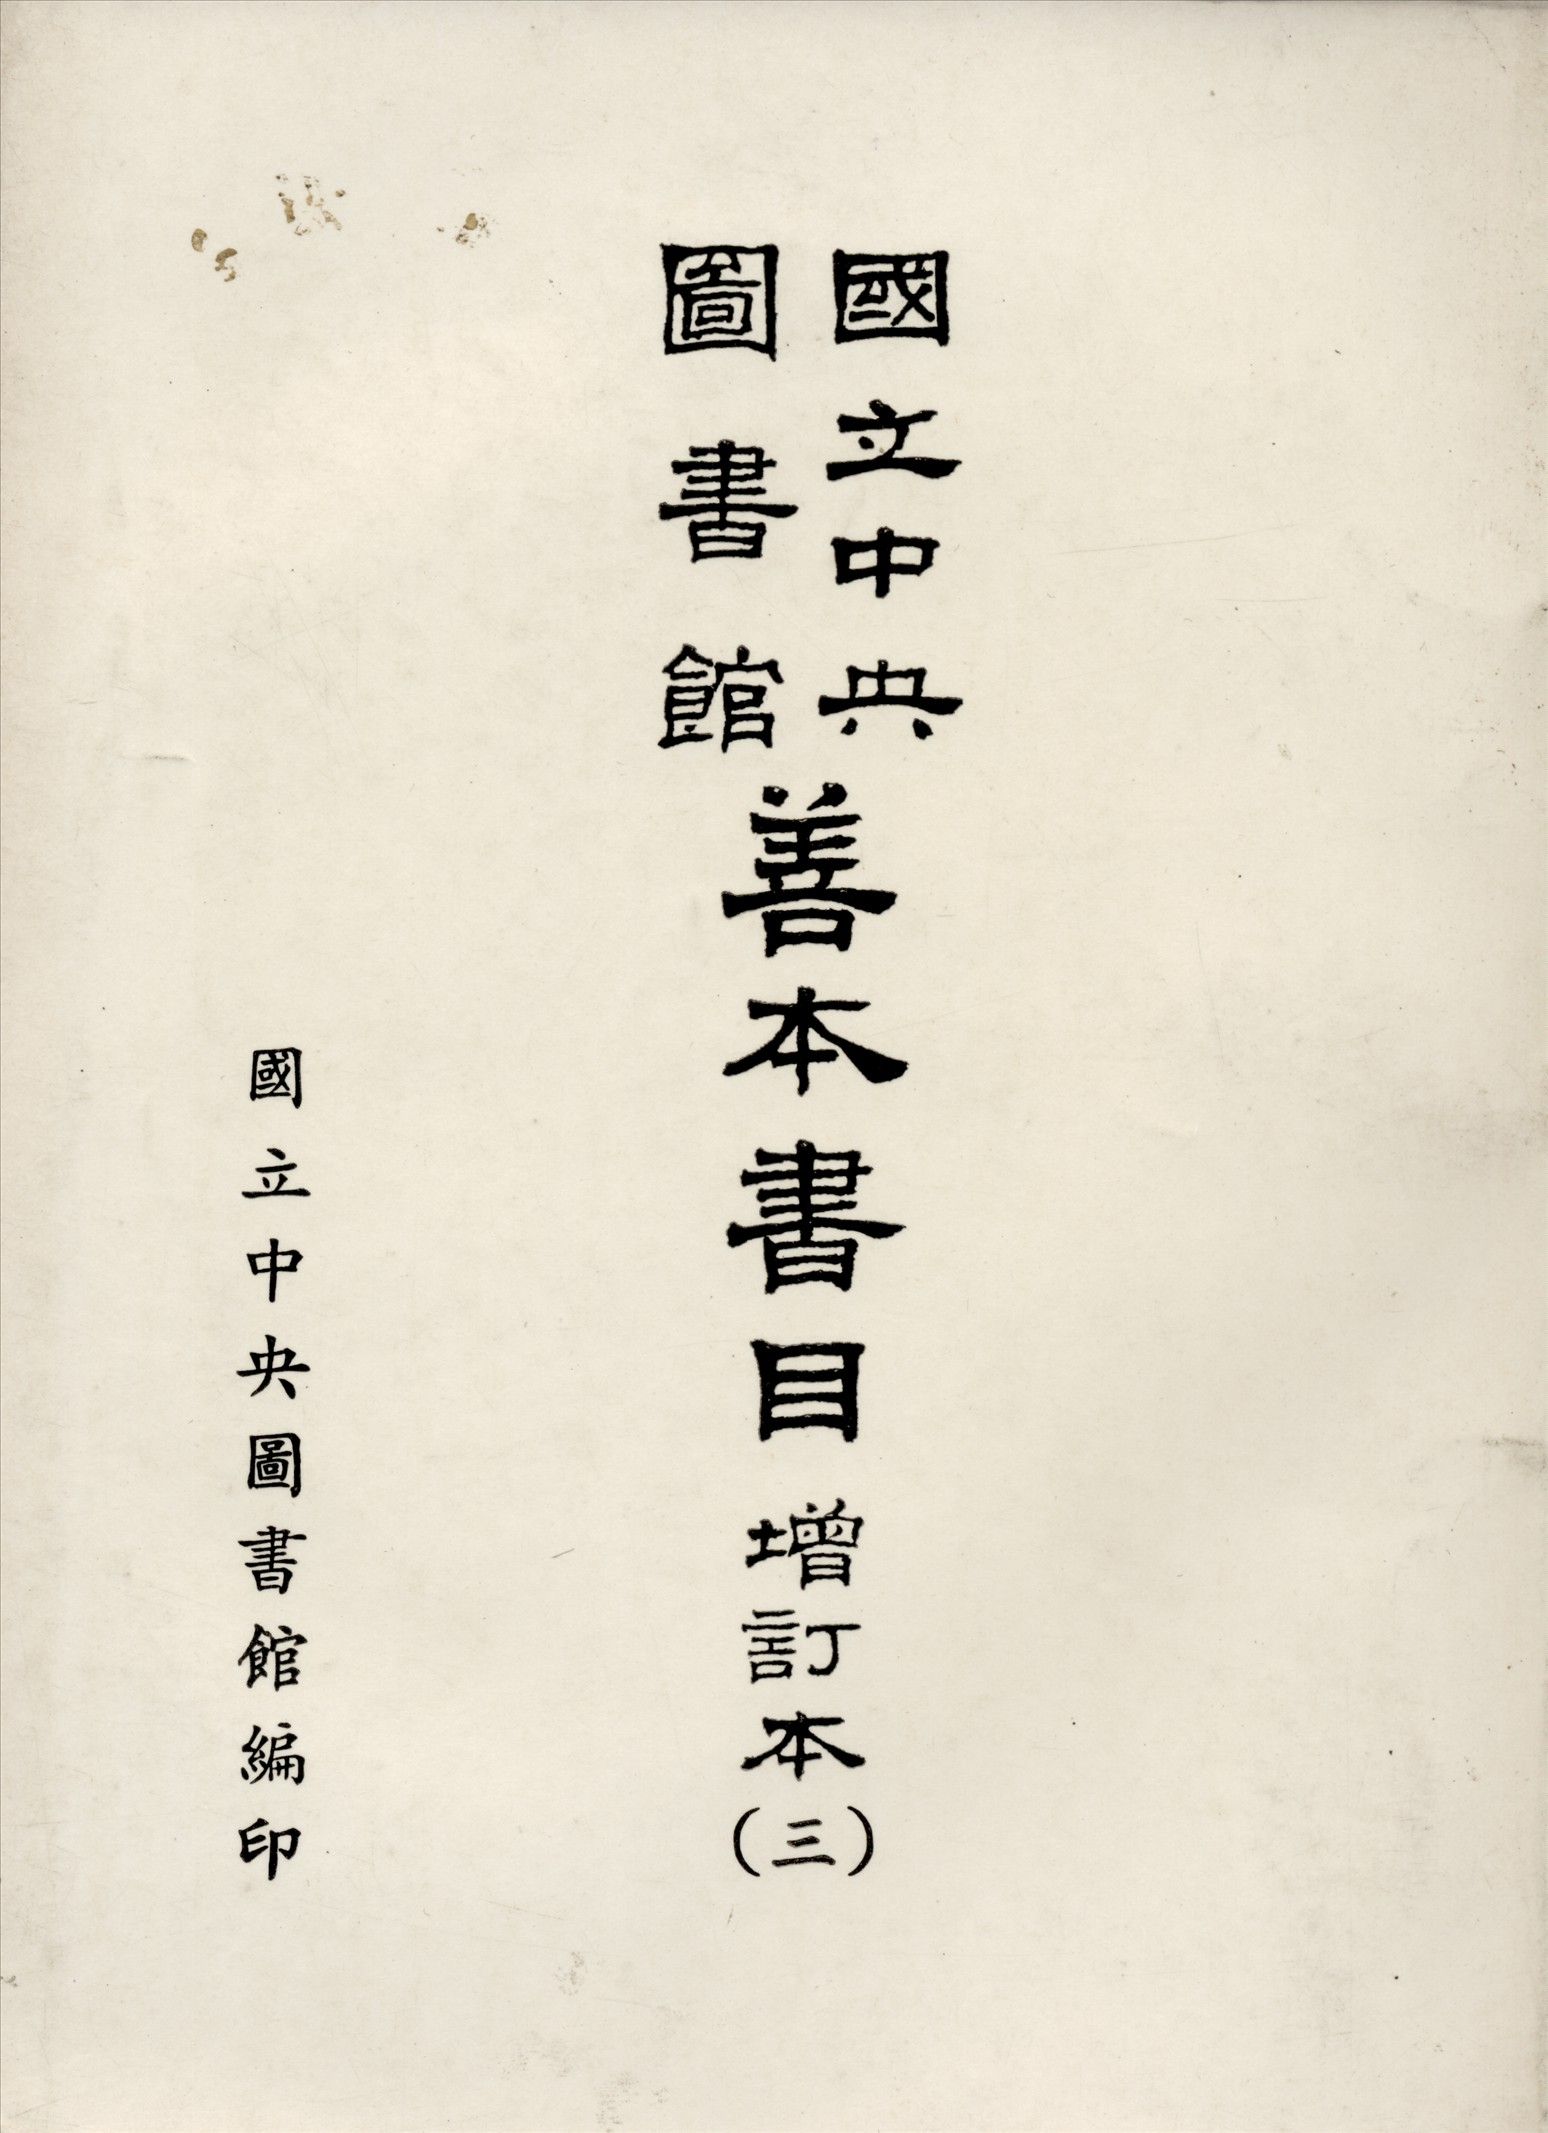 國立中央
圖書館
善本書目 增訂本
(三)
國立中央圖書館編印